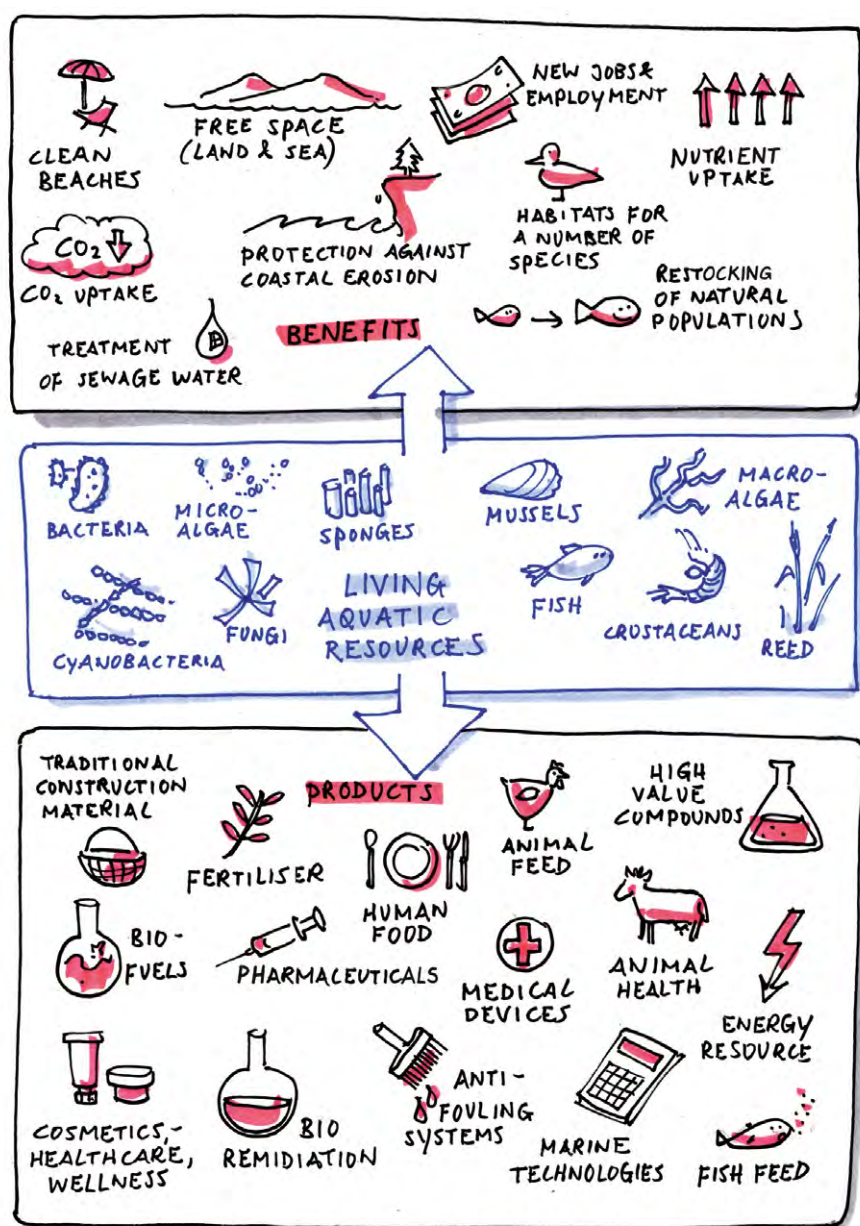 CLEAN
BEACHES
FREE SPACE
(LAND & SEA)
NEW JOBS &
EMPLOYMENT
NUTRIENT
UPTAKE
CO2
CO2 UPTAKE
PROTECTION AGAINST
COASTAL EROSION
HABITATS FOR
A NUMBER OF
SPECIES
TREATMENT
OF SEWAGE WATER
BENEFITS
RESTOCKING
OF NATURAL
POPULATIONS
BACTERIA
MICRO-
ALGAE
SPONGES
MUSSELS
MACRO-
ALGAE
CYANOBACTERIA
FUNGI
LIVING
AQUATIC
RESOURCES
FISH
CRUSTACEANS
REED
TRADITIONAL
CONSTRUCTION
MATERIAL
FERTILISER
PRODUCTS
HUMAN
FOOD
ANIMAL
FEED
HIGH
VALUE
COMPOUNDS
BIO-
FUELS
PHARMACEUTICALS
MEDICAL
DEVICES
ANIMAL
HEALTH
ENERGY
RESOURCE
COSMETICS,-
HEALTHCARE,
WELLNESS
BIO
REMIDIATION
ANTI-
FOULING
SYSTEMS
MARINE
TECHNOLOGIES
FISH FEED